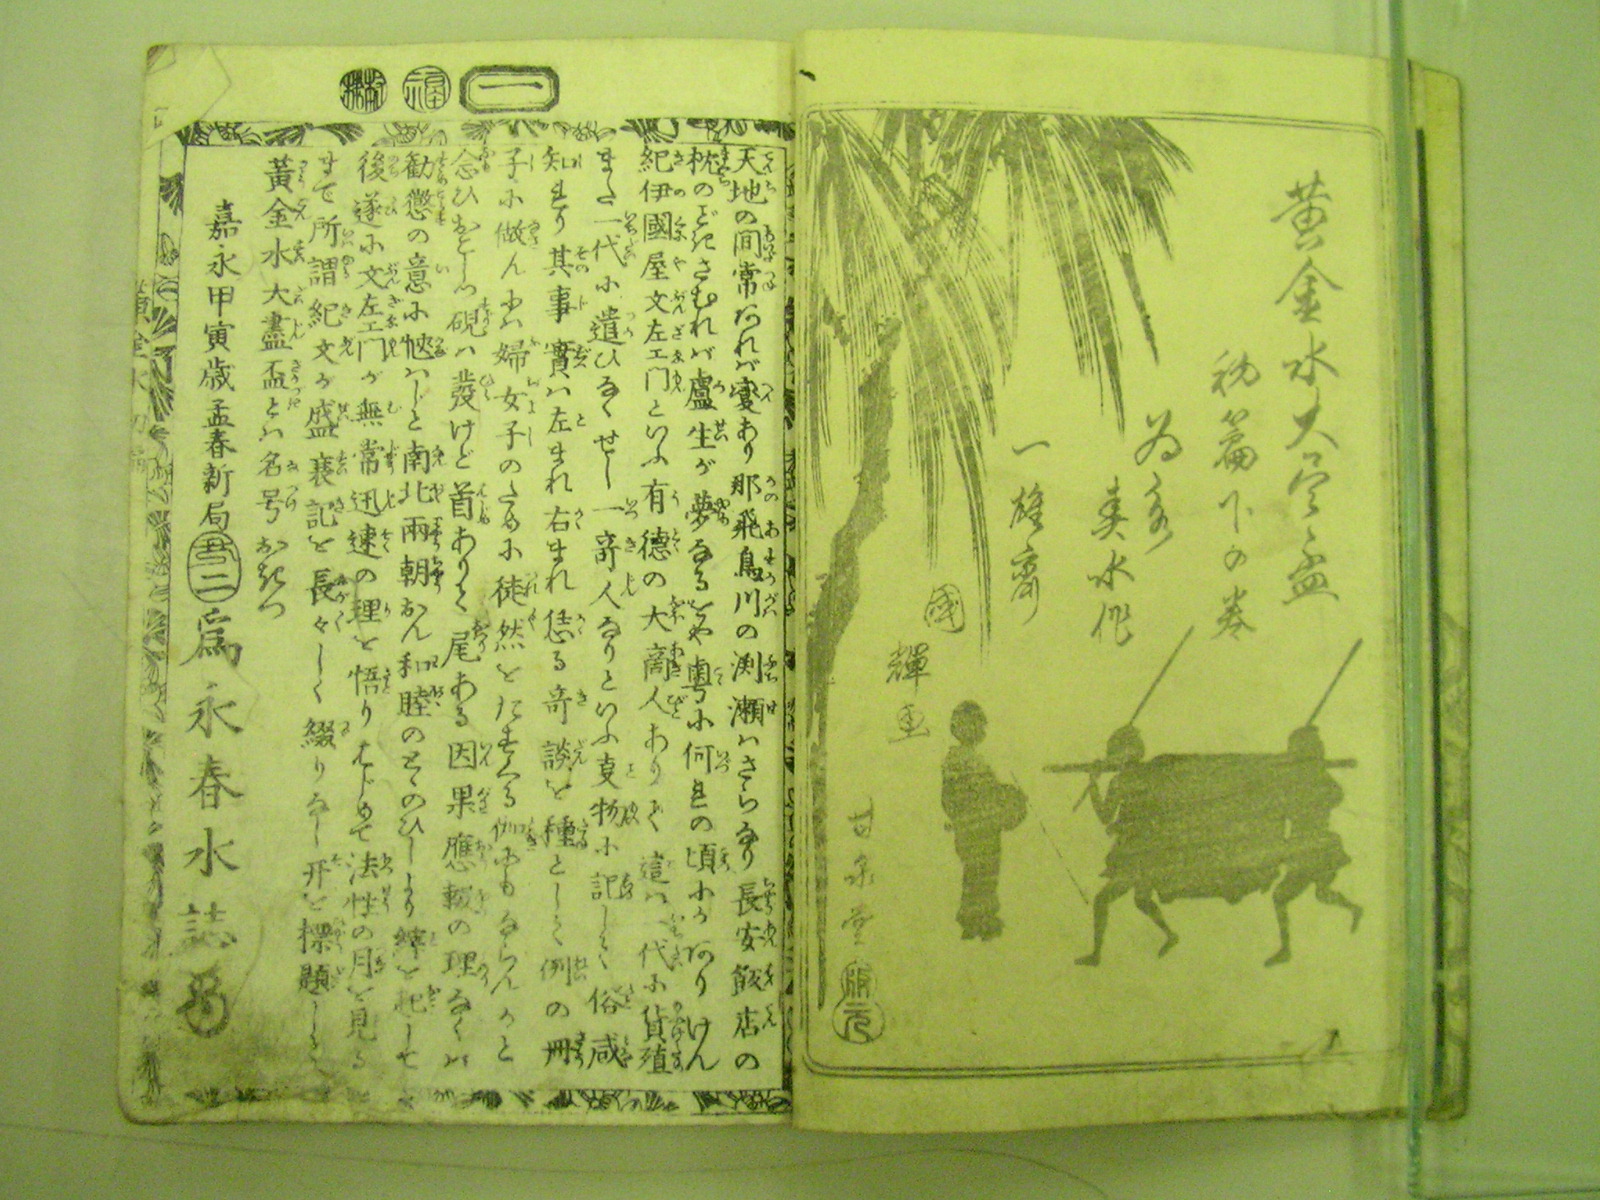 黄金水大尽盃
初篇下の巻
為永
春水作
一雄齋
國輝画
甘泉堂
一
福
天地の間常なれば変あり那飛鳥川の渕瀬はさらなり長安飯店の
枕のどきさむれば盧生が夢なるをや粤に何れの頃にかありけん
紀伊國屋文左エ門といふ有徳の大商人ありて這は一代に貨殖
また一代に遣ひなくせし一奇人なりといふ夏物に記して俗咸
知れり其事實は左まれ右まれ恁る奇談を種として例の冊
子に做んには婦女子のために徒然をたすくる伽にもならんかと
念ひおとしつ硯は發けど首ありて尾ある因果應報の理なくは
勧懲の意に愜はじと南北兩朝おん和睦のとゝのひしより
後遂に文左エ門が無常迅速の理を悟りはじめて法性の月を見る
まで所謂紀文が盛衰記を長々しく綴りなし开を標題して
黄金水大盡盃とは名号おきつ
嘉永甲寅歳孟春新局
爲永春水誌